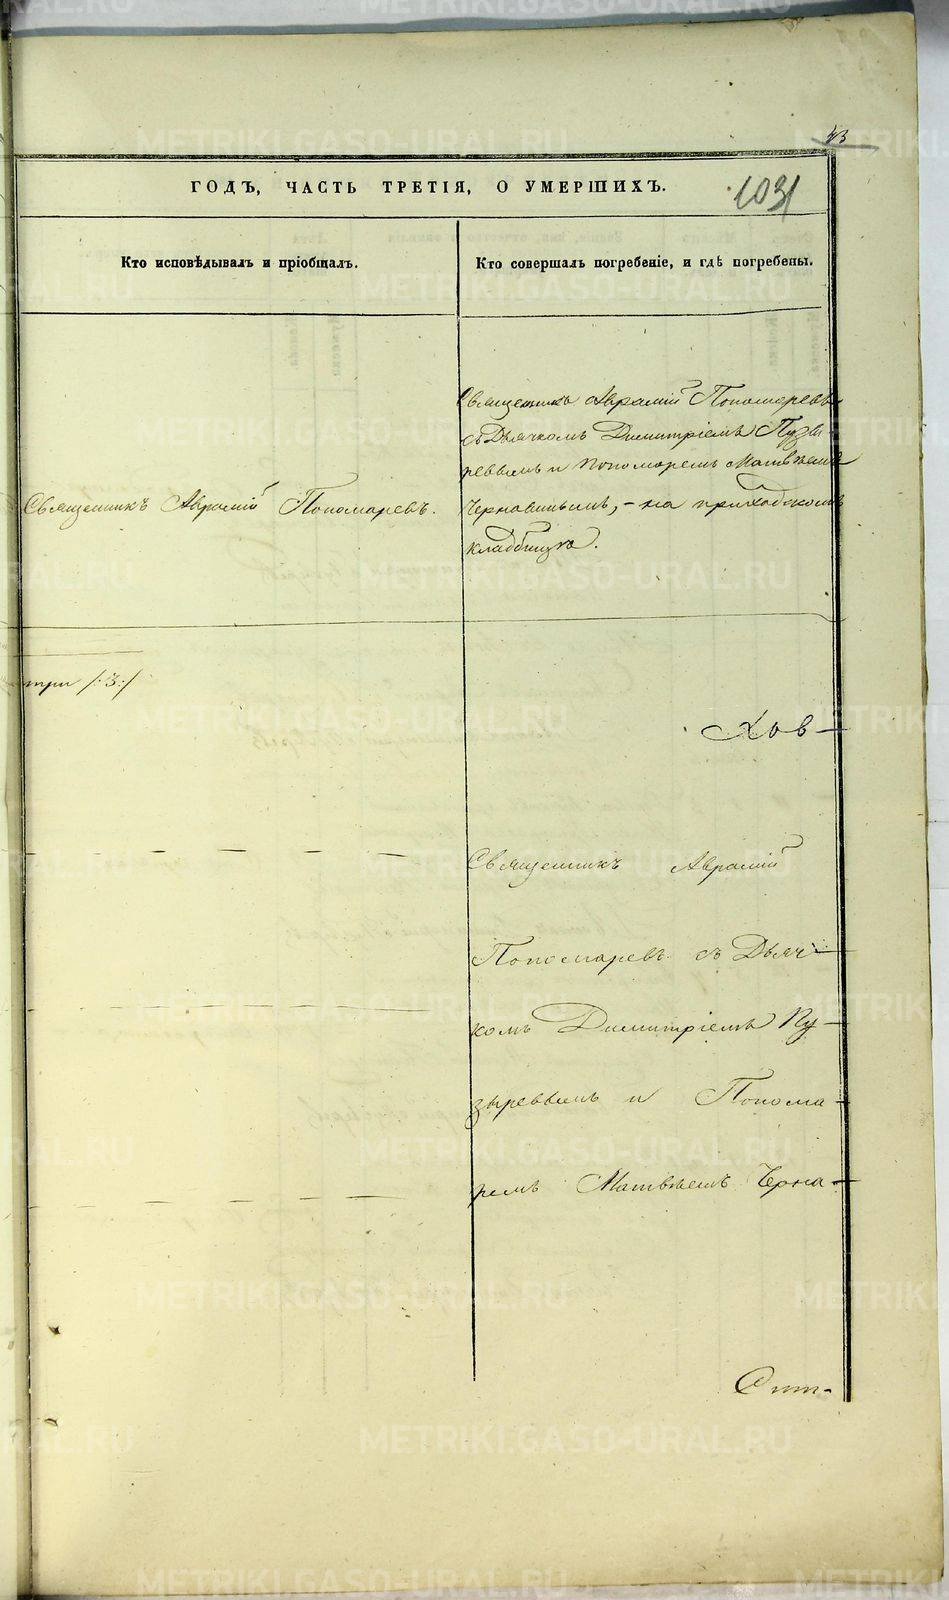 43
ГОДЪ, ЧАСТЬ ТРЕТІЯ, О УМЕРШИХЪ.
1031
Кто исповѣдывалъ и пріобщалъ.
Кто совершалъ погребеніе, и гдѣ погребены.
Священникъ Аврамій Пономаревъ.
Священникъ Аврамій Пономаревъ
съ Дьячкомъ Димитріемъ Пузы-
ревымъ и Пономаремъ Матвѣемъ
Чернавинымъ, - на приходскомъ
кладбищѣ.
три /:3:/
Хов-
Священникъ Аврамій
Пономаревъ съ Дьяч-
комъ Димитріемъ Пу-
зыревымъ и Понома-
ремъ Матвѣемъ Черна-
METRIKI.GASO-URAL.RU